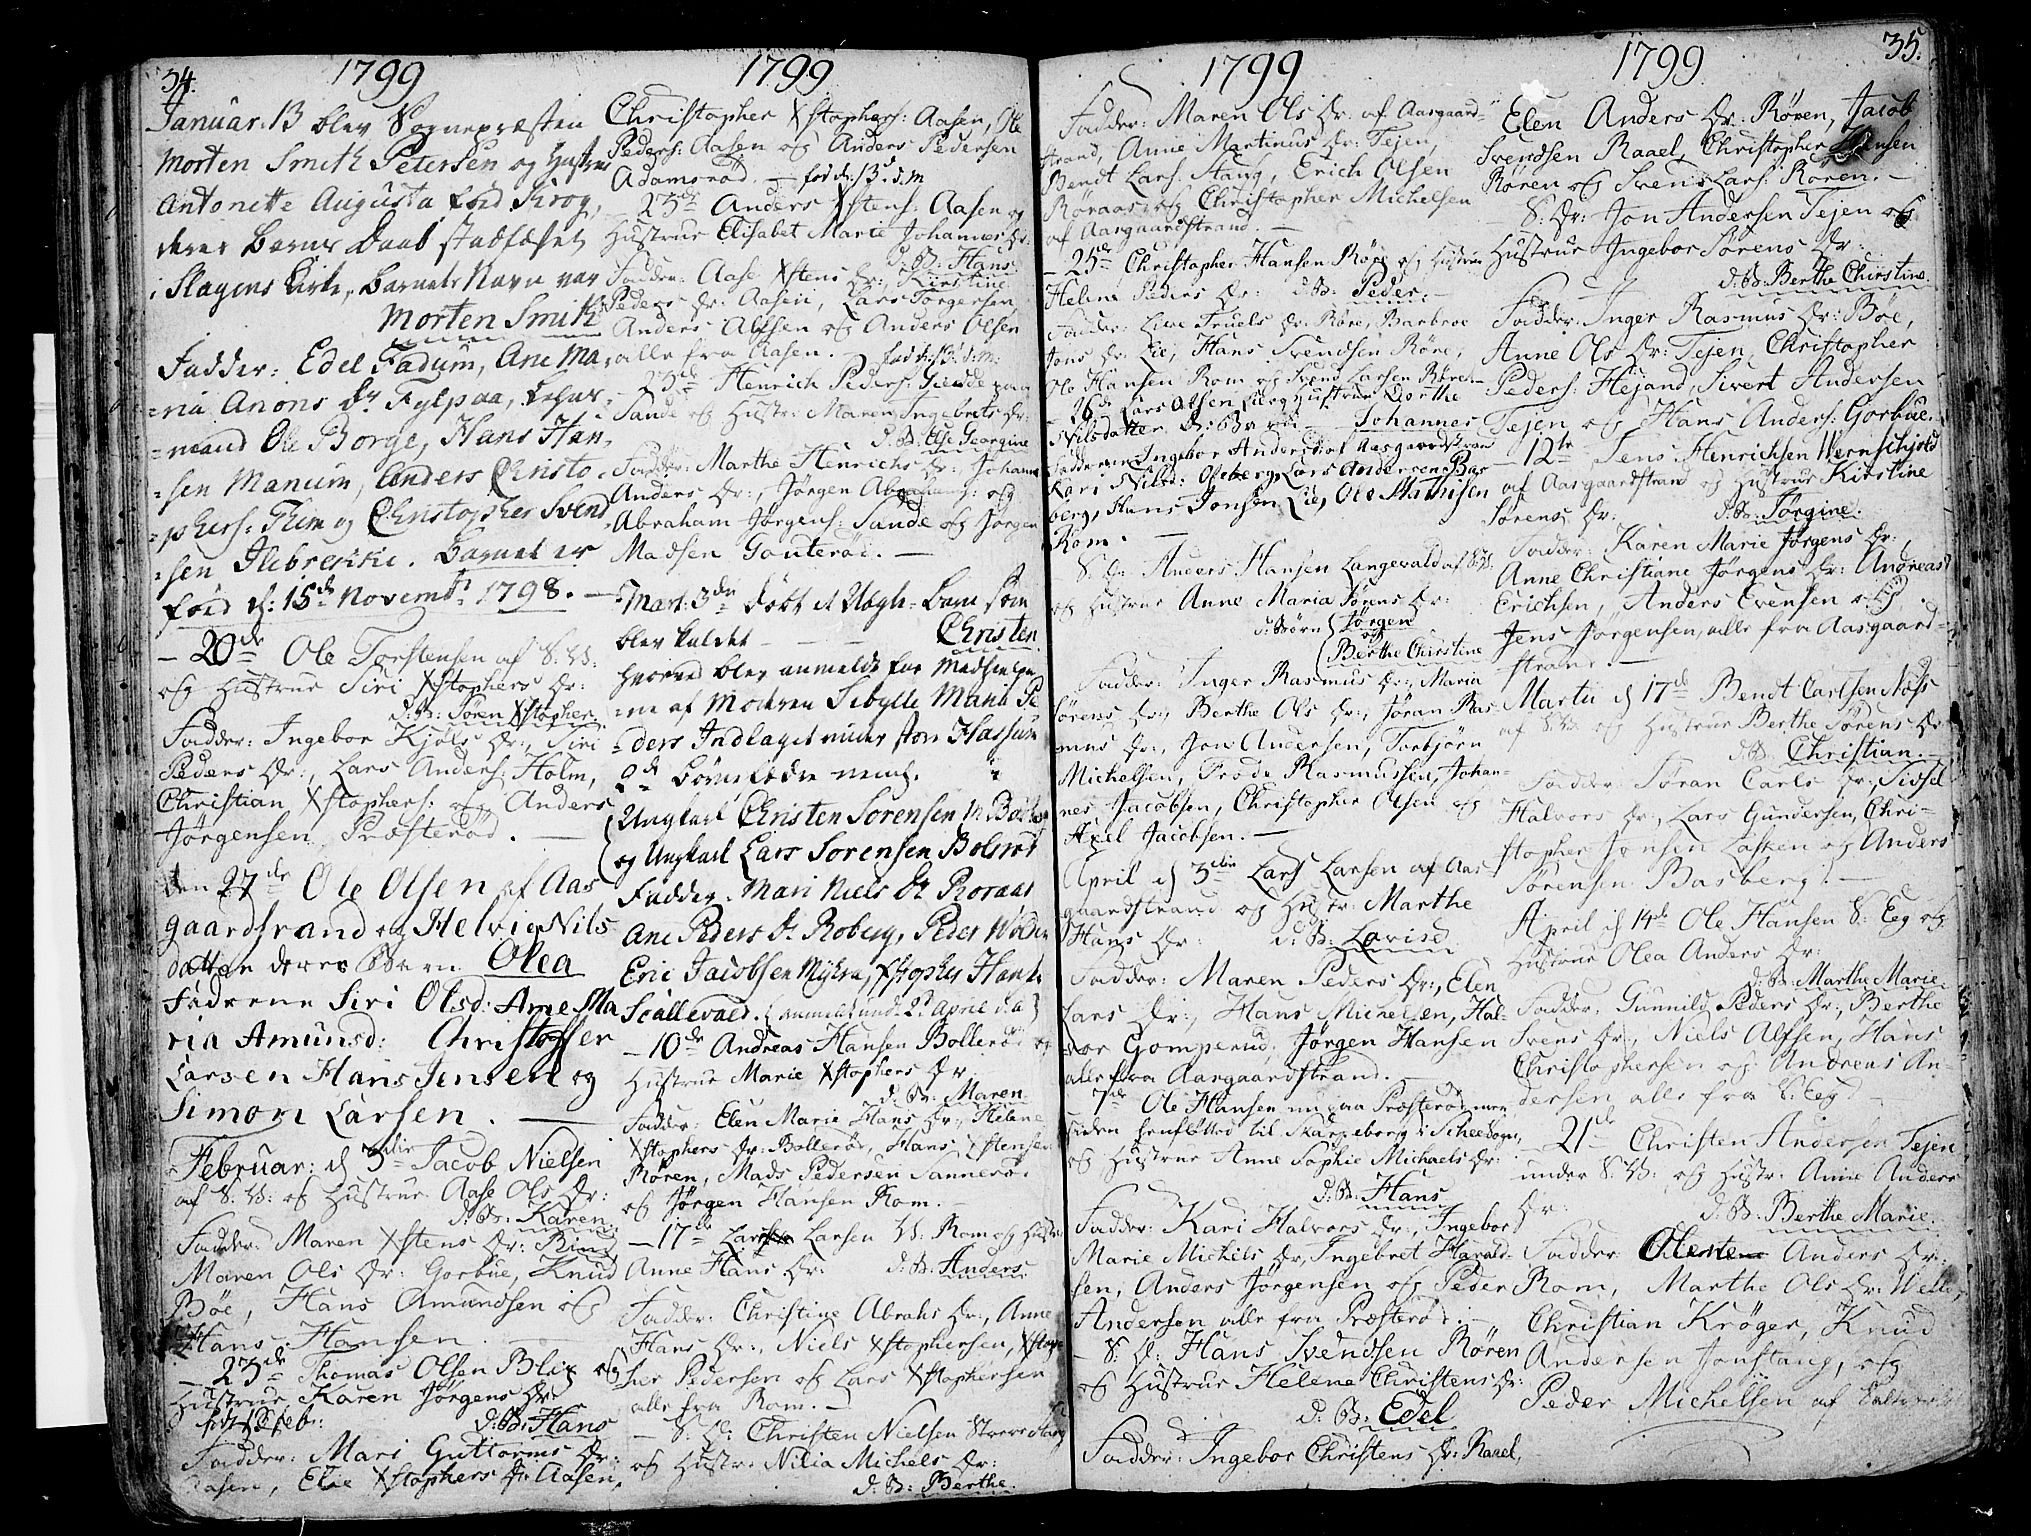 34.
1799
Januar: 13 blev Sognepræsten
Morten Smith Petersen og Hustrue
Antonette Augusta fød Krog,
deres Barns Daab stadfæstet
i Slagens Kirke, Barnets Navn var
Morten Smith
Fadder: Edel Fadum, Ane Ma
=ria Anons Dr Fylpaa,
=mand Ole Borge, Hans Han
=sen Manum, Anders Christo
=phers: Them og Christopher Svend
=sen Ilebrekke. Barnet er
født d: 15de Novembr 1798. —
— 20de Ole Torstensen af S. W:
og Hustrue Siri Xstophers Dr:
d: B: Søren Xstopher
Fadder: Ingebor Kjøls Dr:, Siri
Peders Dr:, Lars Anders: Holm,
Christian Xstophers: og Anders
Jørgensen Præsterød. —
den 27de Ole Olsen af Aas
gaardstrand og Helvig Nils
datter deres Barn Olea
Fadrene Siri Olsd: Ane Ma
ria Amunsd: Christoffer
Larsen Hans Jensen og
Simon Larsen. —
Februar: d 3die Jacob Nielsen
af S. W: og Hustrue Aase Ols Dr:
d: B: Karen
Fadder: Maren Xstens Dr: Rind
Maren Ols Dr: Gorbue, Knud
Bøe, Hans Amundsen og
Hans Hansen. —
— 23de Thomas Olsen Blix og
Hustrue Karen Jørgens Dr:
d: B: Hans
Fadder: Mari Guttorms Dr:
Aasen, Elie Xstophers Dr Aasen,
1799
Christopher Xstophers: Aasen, Ole
Peders: Aasen og Anders Pedersen
Adamsrød. — fød d: 13 d. m
— 23de Anders Xstens: Aasen og
Hustrue Elisabet Marie Johannes Dr:
d: B: Hans
Fadder: Aase Xstens Dr:, Kirstine
Peders Dr: Aasen, Lars Torgersen,
Anders Alfsen og Anders Olsen
alle fra Aasen. fød d: 13: d: m:
— 23de Henrich Peders: paa
Sande og Hustr: Maren Ingebrets Dr:
d: B: Else Georgine
Fadder: Marthe Henrichs Dr:, Johanne
Anders Dr:, Jørgen Abrahams: og
Abraham Jørgens: Sande og Jørgen
Madsen Gouterød. —
Mart: 3de døbt et Uægte Barn som
blev kaldet — — Christen
hvorved blev anmeldt
af Modren Sibylle Maria Pe
=ders Indlaget
2de
Ungkarl Christen Sørensen
og Ungkarl Lars Sørensen Bolsrød
Fadder: Mari Niels Dr Roraas
Ane Peders Dr Roberg, Peder
Eric Jacobsen Mykra, Xstopher Hans:
Scallevald. (anmeldt und: 2d April d. a)
— 10de Andreas Hansen Bollerød og
Hustrue Marie Xstophers Dr:
d: B: Maren
Fadder: Elen Marie Hans Dr:, Helene
Xstophers Dr: Bollerød, Hans Xstensen
Røren, Mads Pedersen Sannerød
og Jørgen Hansen Rom.
— 17de Larsen W. Rom og Hustr:
Anne Hans Dr: d: B: Anders
Fadder: Christine Abrahs Dr:, Anne
Hans Dr:, Niels Xstophersen, Xstop
her Pedersen og Lars Xstophersen
alle fra Rom. —
— S: D: Christen Nielsen
og Hustr: Nilia Michels Dr:
d: B: Berthe
1799
Fadder: Maren Ols Dr: af Aasgaard
strand, Anne Martinus Dr: Tejen,
Bendt Lars: Stang, Erich Olsen
Røraas og Christopher Michelsen
af Aasgaardstrand. —
— 25de Christopher Hansen Røre og Hustrue
Helene Peders Dr: d: B: Peder. —
Fadder: Live Truels Dr: Røre, Barbroe
Jens Dr: Lie, Hans Svendsen Røre,
Ole Hansen Rom og Svend Larsen Røre —
— 26de Lars Olsen Lie og Hustrue Dorthe
Nilsdatter D: Barn — Johannes
Fadderne Ingebor Andersd: af Aasgaardstrand
Kari Nilsd: Oseberg, Lars Andersen Bas
berg, Hans Jonsen Lie, Ole Mathisen
Rom. —
S: D: Anders Hansen Langevald af S: W:
og Hustrue Anne Maria Sørens Dr:
d: Børn { Jørgen
og
Berthe Chirstine
Fadder: Inger Rasmus Dr:, Maria
Sørens Dr:, Berthe Ols Dr:, Jøran Ras
mus Dr:, Jon Andersen, Torbjørn
Michelsen, Frode Rasmussen, Johan-
nes Jacobsen, Christopher Olsen og
Axel Jacobsen. —
April d 3die Lars Larsen af Aas
gaardstrand og Hustr: Marthe
Hans Dr: d: B: Lovise
Fadder: Maren Peders Dr:, Elen
Lars Dr:, Hans Michelsen, Hal-
vor Gomperud, Jørgen Hansen
alle fra Aasgaardstrand. —
7de Ole Hansen nu paa Præsterød men
siden henflyttet til
og Hustrue Anne Sophie Michaels Dr:
d: B: Hans
Fadder: Kari Halvors Dr:, Ingebor
Marie Michels Dr, Ingebret Harald-
sen, Anders Jørgensen og Peder
Andersen alle fra Præsterød. —
— S: D: Hans Svendsen Røren
og Hustrue Helene Christens Dr:
d: B: Edel
Fadder: Ingebor Christens Dr: Raael,
1799
35.
Elen Anders Dr: Røren, Jacob
Svendsen Raael, Christopher Jensen
Røren og Svend Lars: Røren. —
— S: Dr: Jon Andersen Tejen og
Hustrue Ingebor Sørens Dr:
d: B: Berthe Chirstine.
Fadder: Inger Rasmus Dr: Bøe,
Anne Ols Dr: Tejen, Christopher
Peders: Hejand, Sivert Andersen
Tejen og Hans Anders: Gorbue.
— 12te Jens Henrichsen Wernschjold
af Aasgaardstrand og Hustrue Kirstine
Sørens Dr: d: B: Jørgine.
Fadder: Karen Marie Jørgens Dr:,
Anne Christiane Jørgens Dr: Andreas
Erichsen, Anders Evensen og
Jens Jørgensen, alle fra Aasgaard-
strand. —
Martii d 17de Bendt Carlsen Næss
af S. W: og Hustrue Berthe Sørens Dr
d: B: Christian. —
Fadder: Søran Carls Dr:, Sissel
Halvors Dr:, Lars Gundersen, Chri-
stopher Jonsen Lasken og Anders
Sørensen Basberg. —
April d 14de Ole Hansen S: Eeg og
Hustrue Olea Anders Dr:
d: B: Marthe Marie.
Fadder: Gunnild Peders Dr:, Berthe
Svens Dr:, Niels Alfsen, Hans
Christophersen og Andreas An-
dersen alle fra S: Eeg. —
— 21de Christen Andersen Tejen
under S: W: og Hustr: Anne Anders
Dr: d: B: Berthe Marie.
Fadder: Anders Dr:
Rom, Marthe Ols Dr: Welle,
Christian Krøger, Knud
Andersen Jonstang, og
Peder Michelsen af